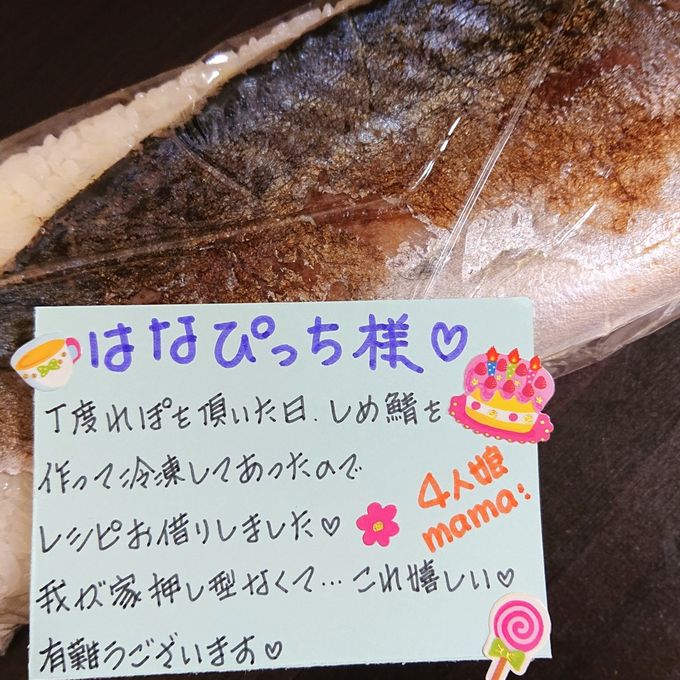 はなぴっち様♡
丁度れぽを頂いた日、しめ鯖を
作って冷凍してあったので
レシピお借りしました♡
我が家押し型なくて…これ嬉しい♡
有難うございます♡
4人娘
mama: